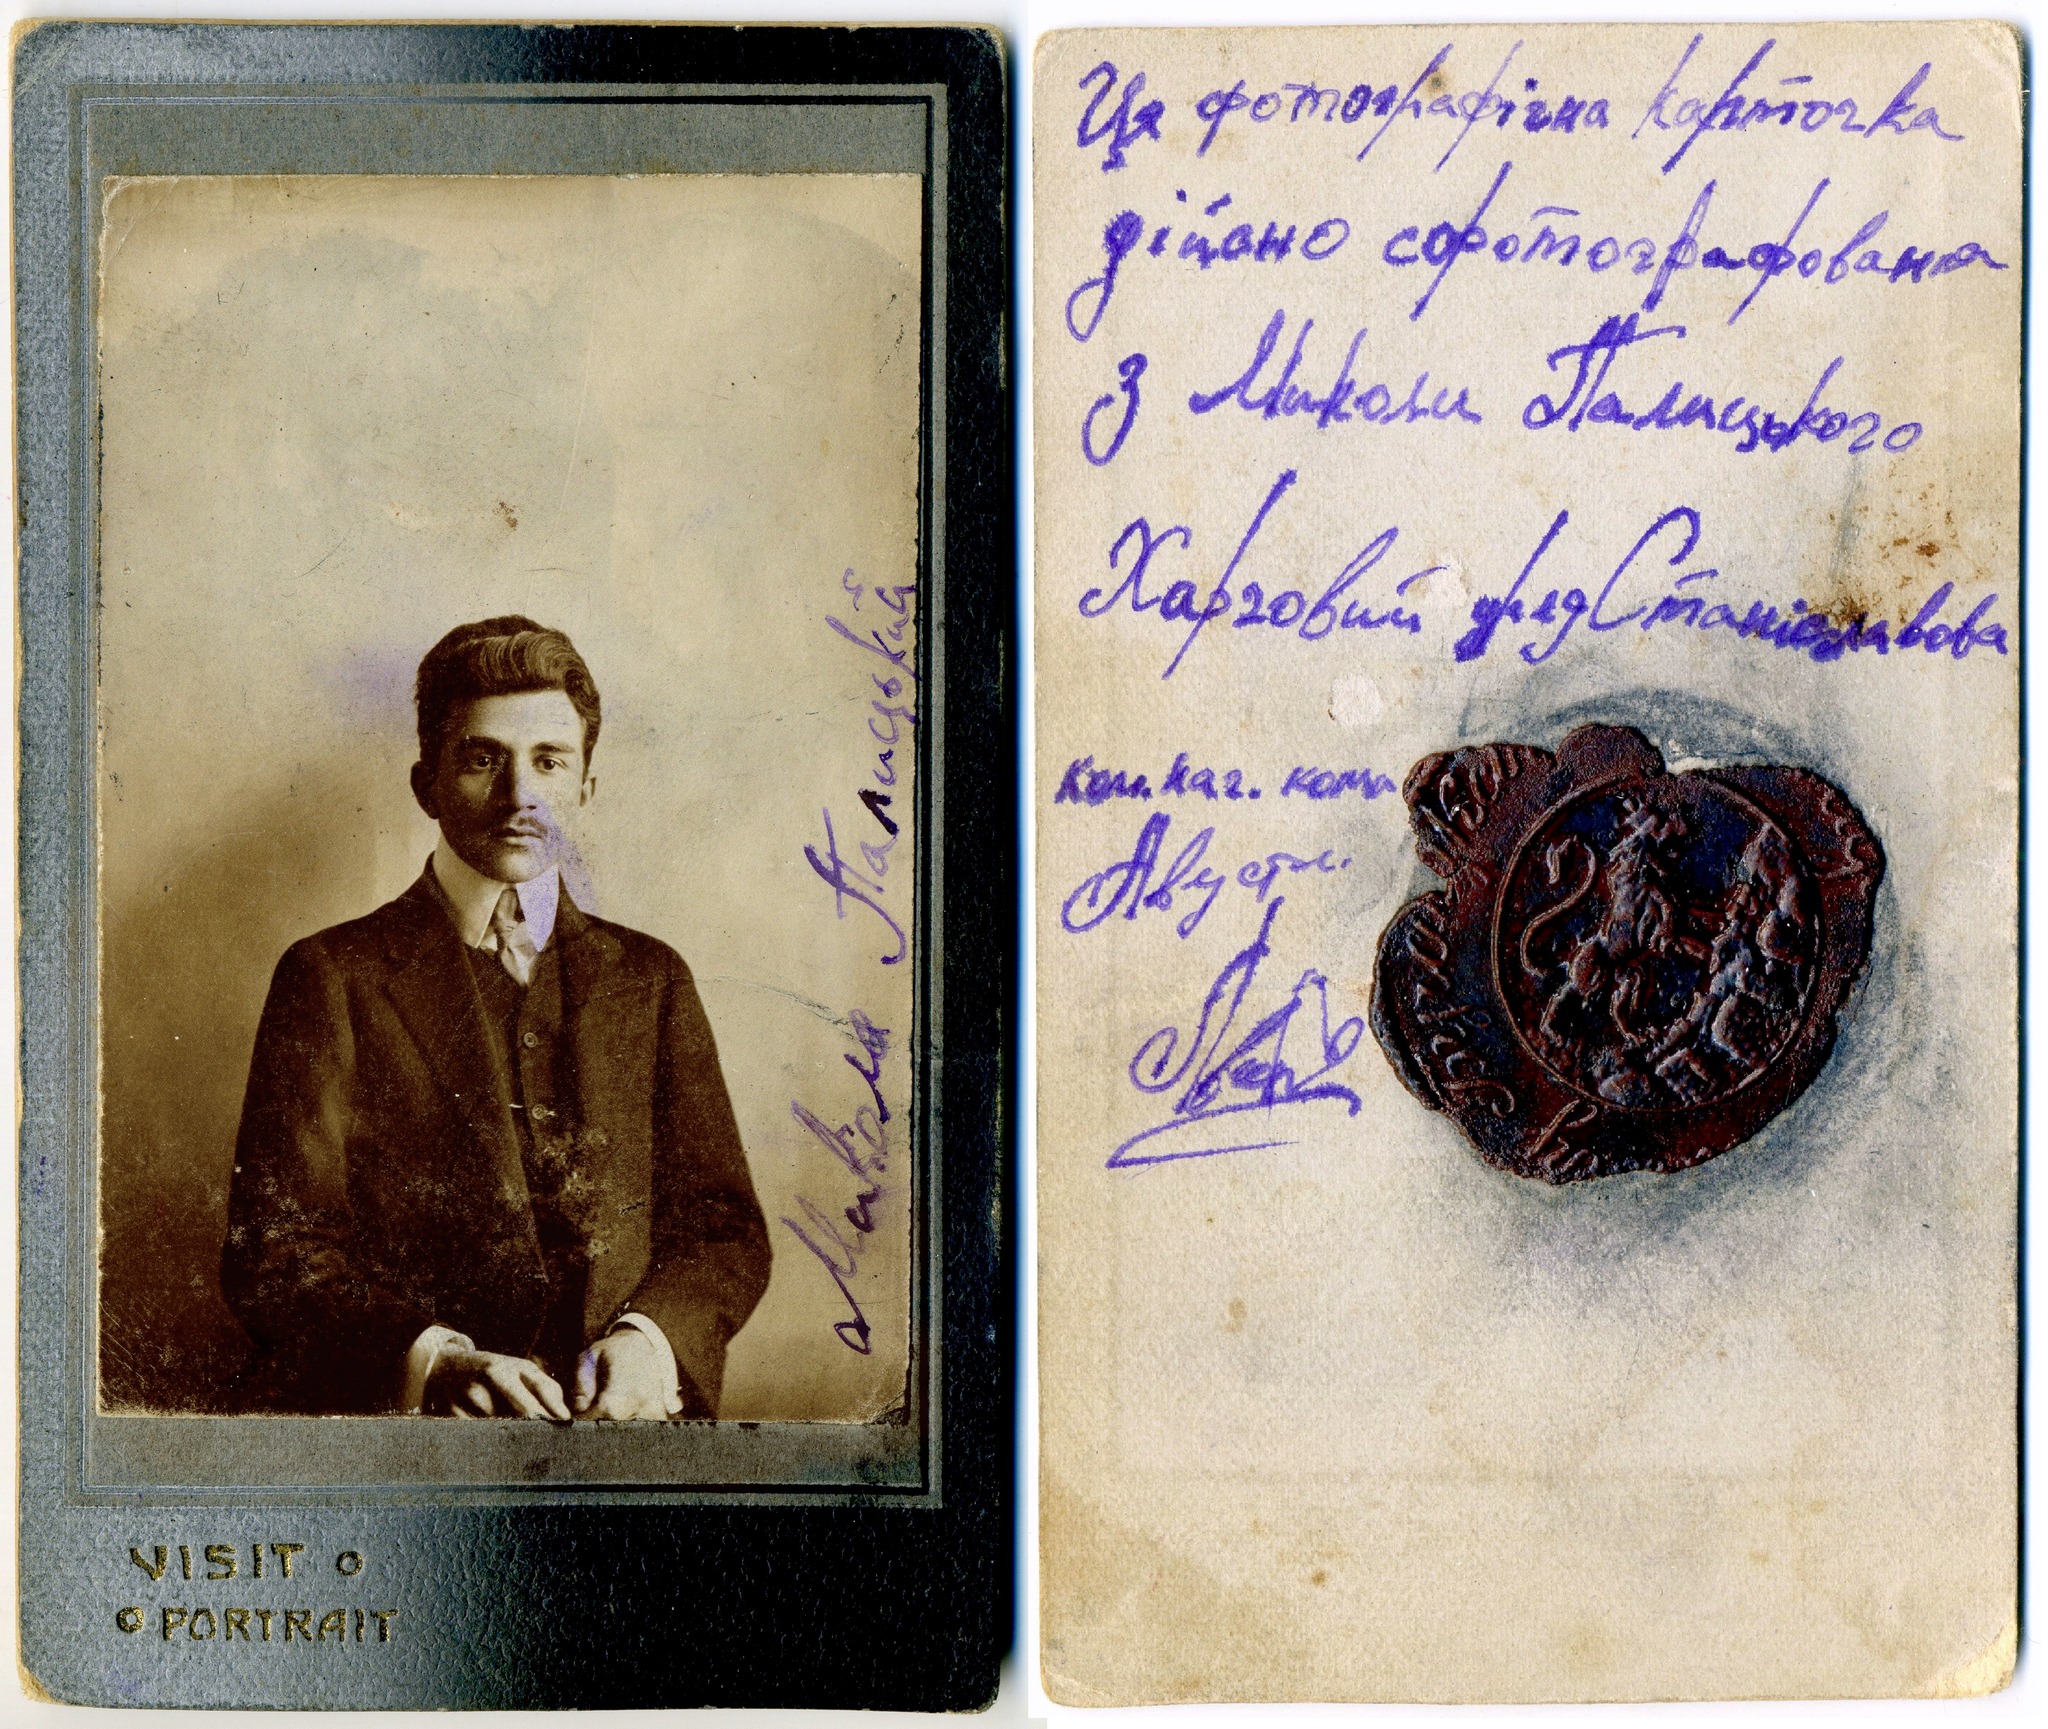 Микола Палицький
VISIT
PORTRAIT
Ця фотографічна карточка
дійсно сфотографована
з Миколи Палицького
Харчовий уряд Станіславова
ком. нач.